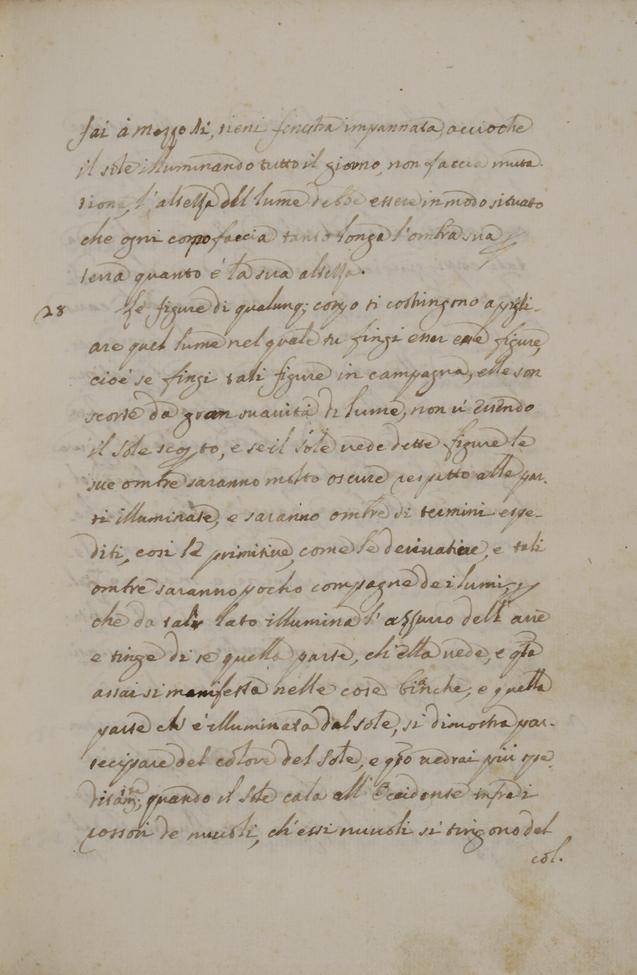 fai à mezzo dì, tieni fenestra impannata, accioche
il sole illuminando tutto il giorno, non faccia muta
tione, l'altezza dell lume debbe essere in modo situato
che ogni corpo faccia tanto longa l'ombra sua
terra quanto è la sua altezza.
28 Le figure di qualunq; corpo ti costringono a pigli-
are quel lume nel quale tu fingi esser esse figure,
cioè se fingi tali figure in campagna, elle son
scorte da gran suavità di lume, non vi essendo
il sole scopto, e se il sole vede dette figure le
sue ombre saranno molto oscure rispetto alle par-
ti illuminate, e saranno ombre di termini espe-
diti, così le primitive, come le derivative, e tali
ombre saranno pocho compagne de i lumi, p
che da tal lato illumina l'azzuro dell'aire
e tinge di se quella parte, ch'ella vede, e qto
assai si manifesta nelle cose binche, e quella
parte ch è illuminata dal sole, si dimostra par-
tecipare del colore del sole, e qto vedrai più spe
ditamte, quando il sole cala all'Occidente infra i
rossori de nuvoli, ch'essi nuvoli si tingono del
col.